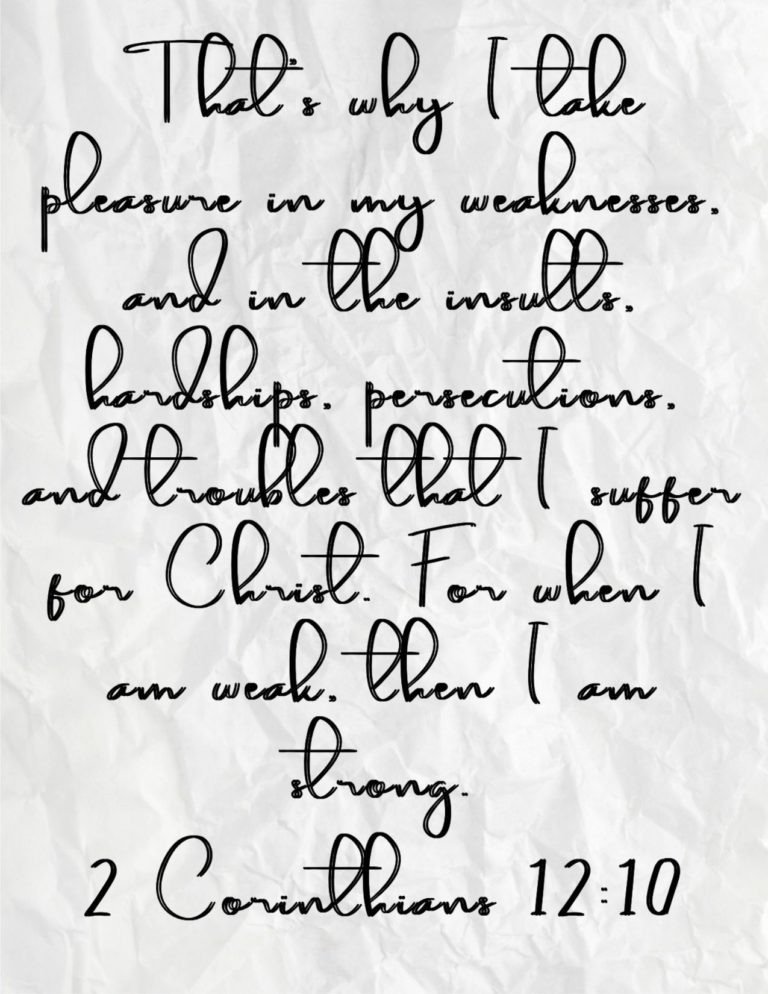 That's why I take
pleasure in my weaknesses,
and in the insults,
hardships, persecutions,
and troubles that I suffer
for Christ. For when I
am weak, then I am
strong.
2 Corinthians 12:10